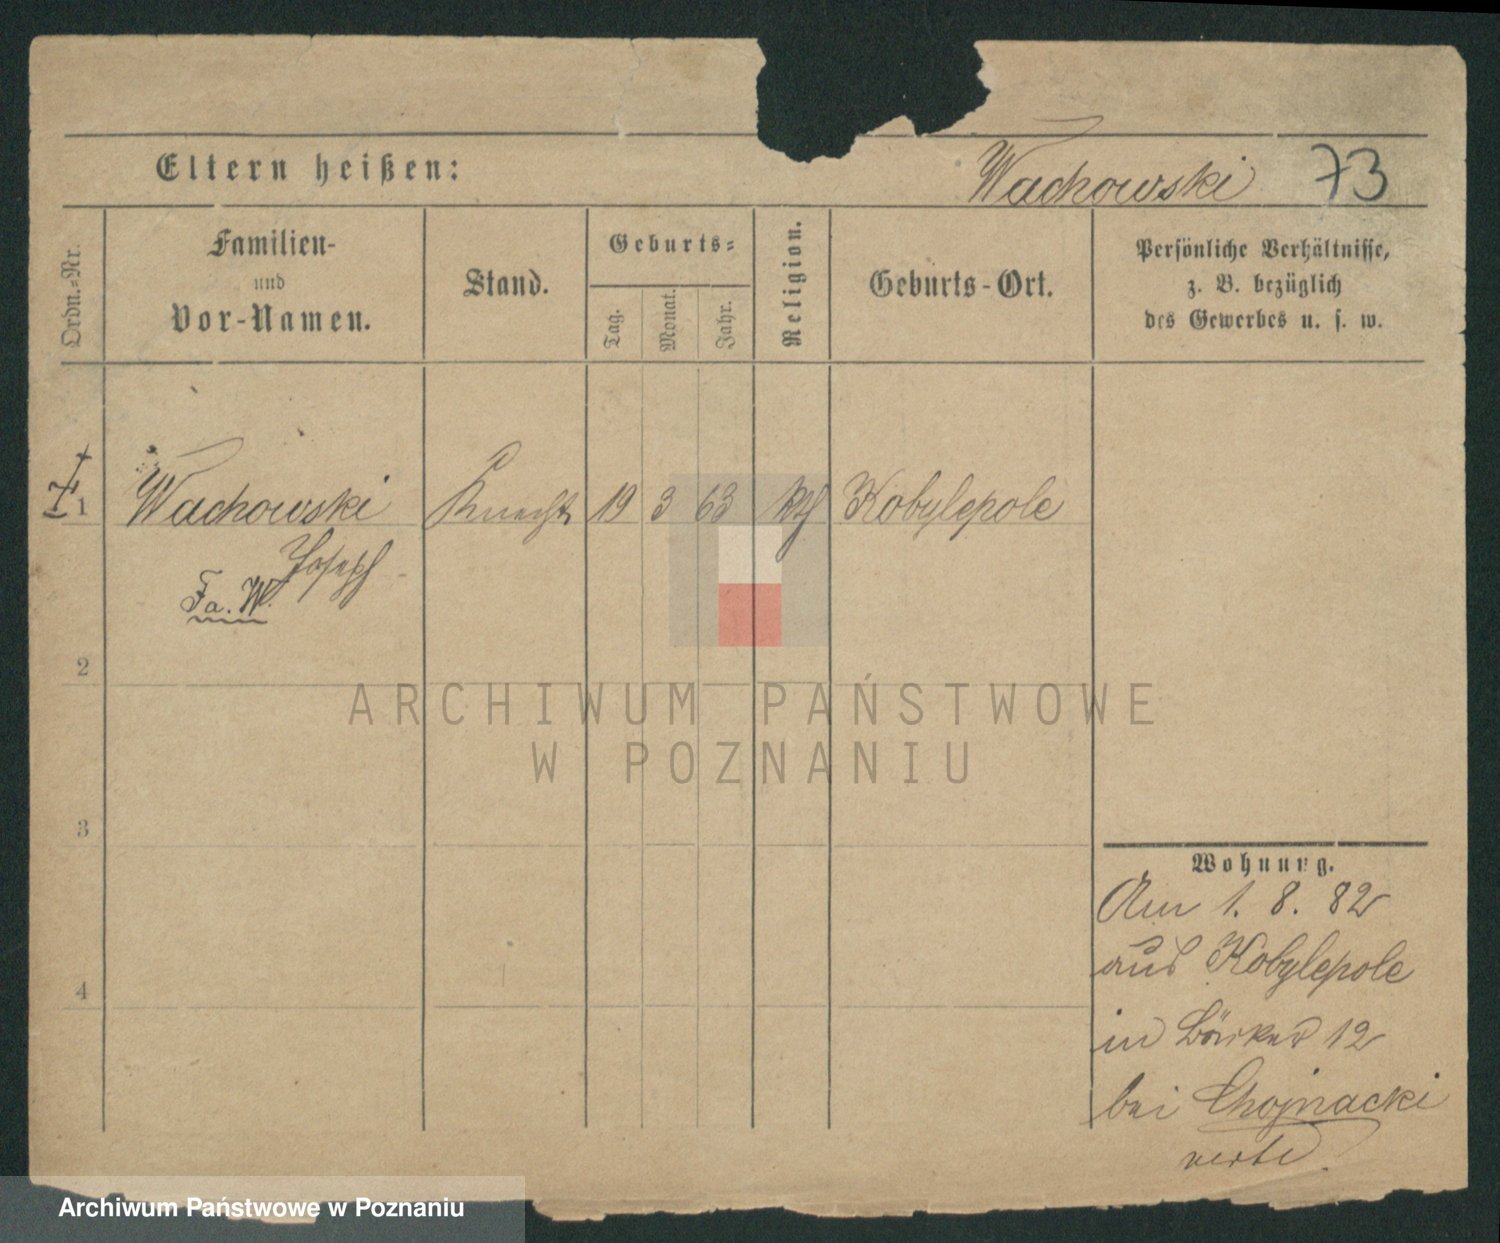 Eltern heißen:
Wachowski 73
Ordn.=Nr.
Familien-
und
Vor-Namen.
Stand.
Geburts=
Tag.
Monat.
Jahr.
Religion.
Geburts-Ort.
Persönliche Verhältnisse,
z. B. bezüglich
des Gewerbes u. s. w.
1 Wachowski Knecht 19 3 63 kth Kobylepole
Joseph
Fa. W.
2
ARCHIWUM PAŃSTWOWE
W POZNANIU
3
4
Wohnung.
Am 1. 8. 82
aus Kobylepole
in 12
bei Chojnacki
verte.
Archiwum Państwowe w Poznaniu